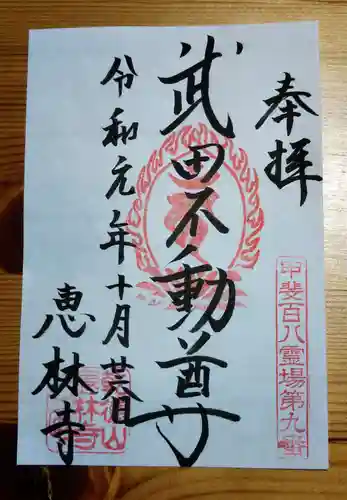 奉拝
甲斐百八霊場第九番
武田不動尊
令和元年十月廿八日
恵林寺